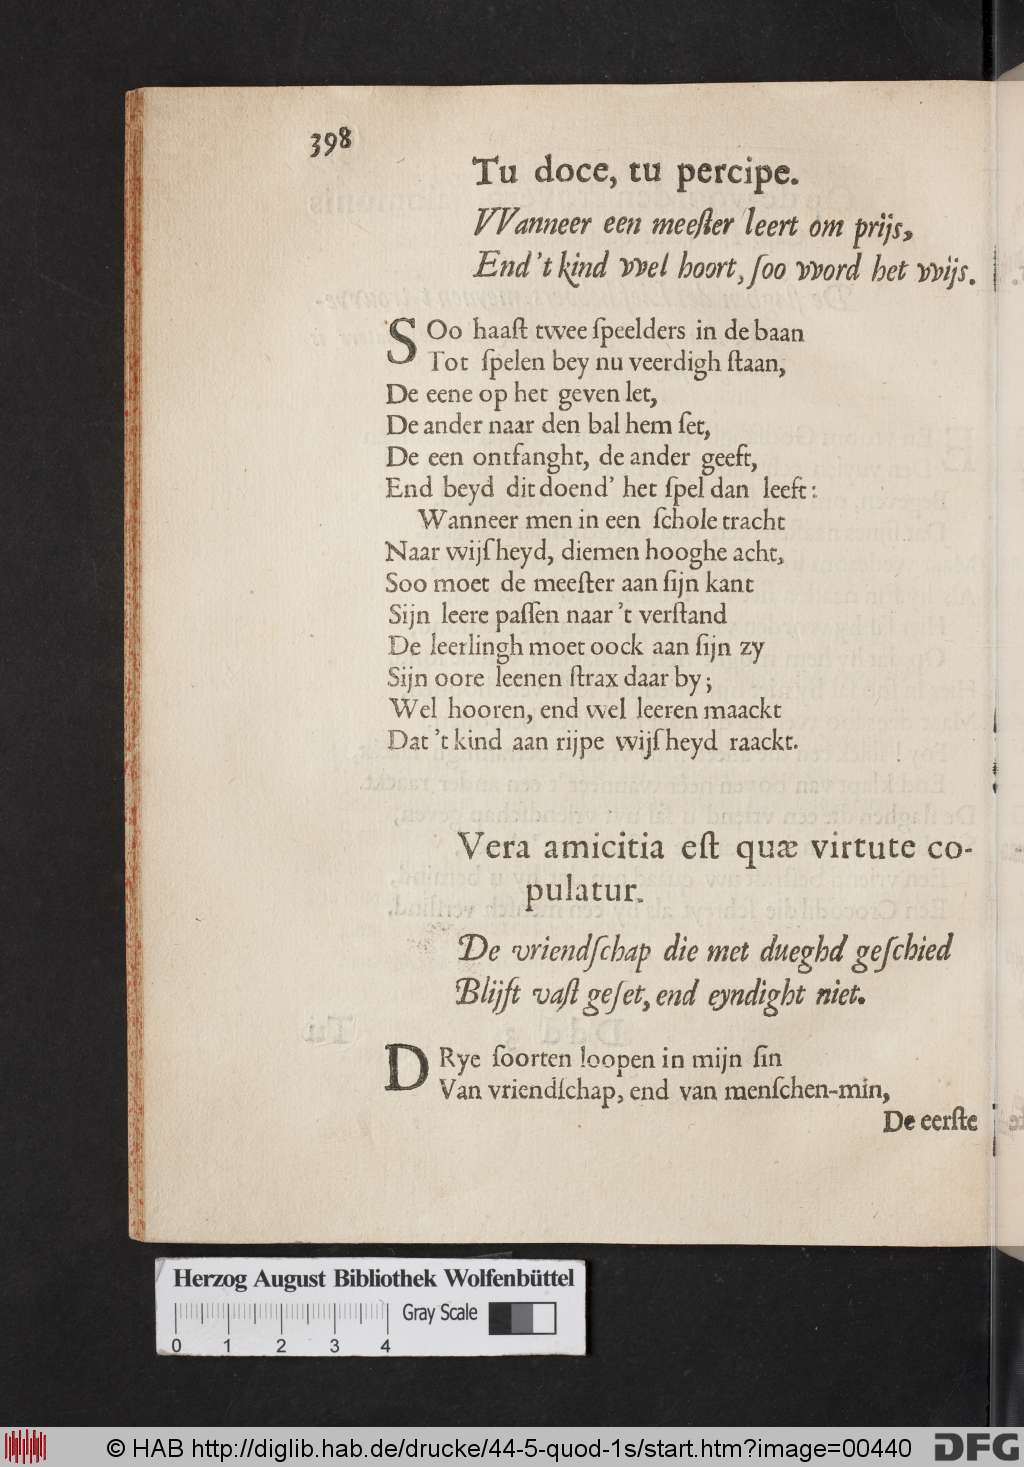 398
Tu doce, tu percipe.
VVanneer een meeſter leert om prijs,
End 't kind vvel hoort, ſoo vvord het vvijs.
SOo haaſt twee ſpeelders in de baan
Tot ſpelen bey nu veerdigh ſtaan,
De eene op het geven let,
De ander naar den bal hem ſet,
De een ontfanght, de ander geeft,
End beyd dit doend' het ſpel dan leeft:
Wanneer men in een ſchole tracht
Naar wijſheyd, diemen hooghe acht,
Soo moet de meeſter aan ſijn kant
Sijn leere paſſen naar 't verſtand
De leerlingh moet oock aan ſijn zy
Sijn oore leenen ſtrax daar by;
Wel hooren, end wel leeren maackt
Dat 't kind aan rijpe wijſheyd raackt.
Vera amicitia eſt quæ virtute co-
pulatur.
De vriendſchap die met dueghd geſchied
Blijft vaſt geſet, end eyndight niet.
DRye ſoorten loopen in mijn ſin
Van vriendſchap, end van menſchen-min,
De eerſte
Herzog August Bibliothek Wolfenbüttel
Gray Scale
0 1 2 3 4
© HAB http://diglib.hab.de/drucke/44-5-quod-1s/start.htm?image=00440
DFG